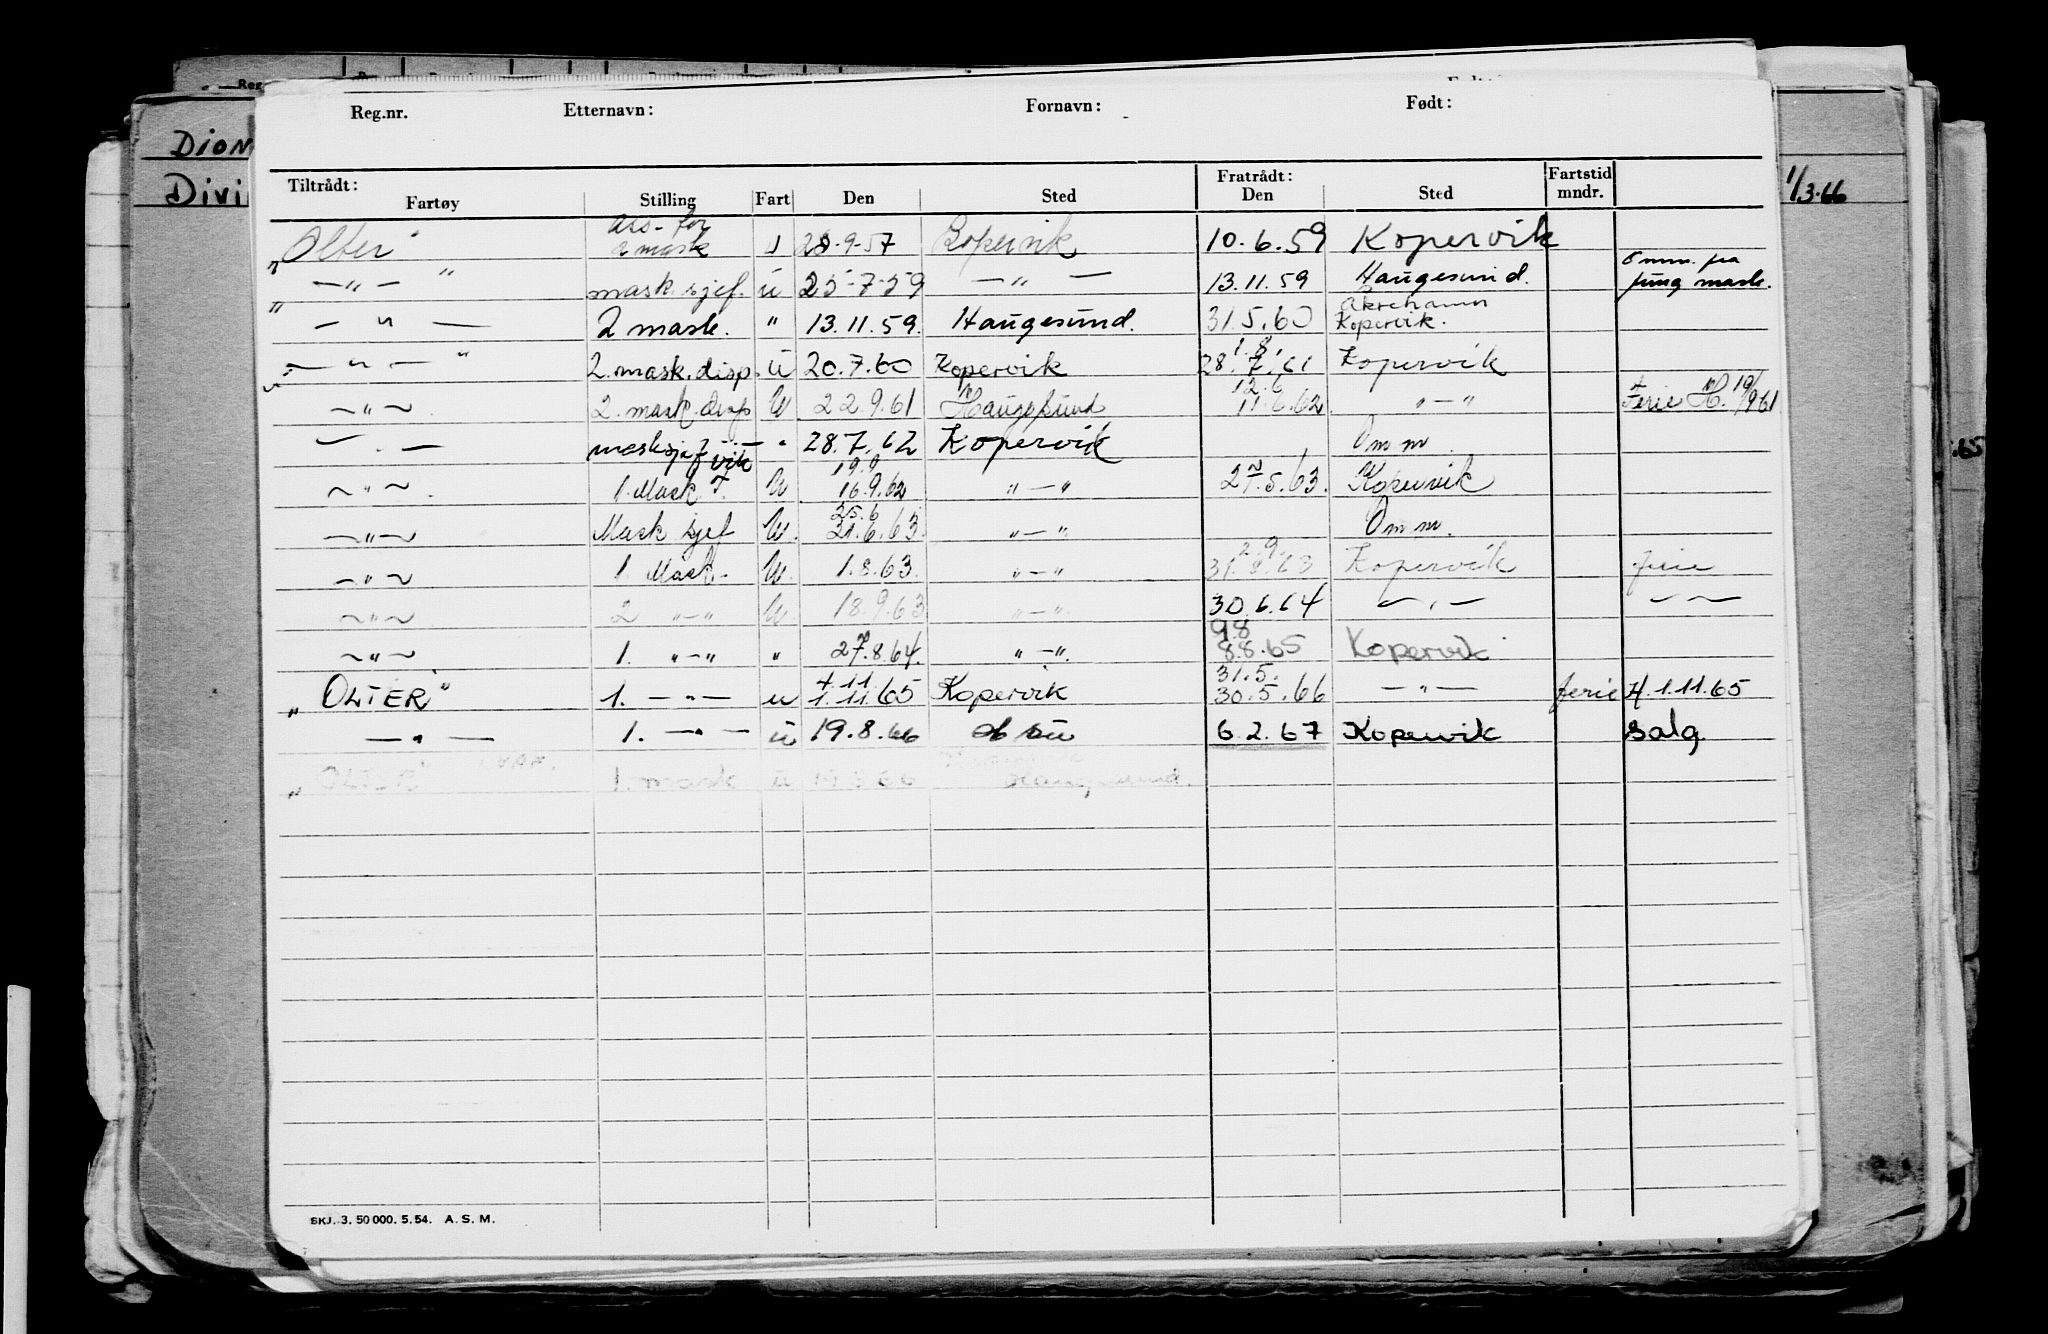 Reg.nr. Etternavn: Fornavn: Født:
Dion
Divi
1/3.66
.65
Tiltrådt: Fratrådt: Fartstid
Fartøy Stilling Fart Den Sted Den Sted mndr.
Ass. for
"Olter" 2 mask u 28-9-57 Kopervik 10.6.59 Kopervik
" — " — " mask.sjef. u 25-7-59 — " — 13.11.59 Haugesund. Omm. fra
fung mask.
Åkrehamn
" — " — 2 mask. " 13.11.59. Haugesund. 31.5.60 Kopervik.
1.8.
" — " — " 2.mask.disp. u 20.7.60 Kopervik 28.7.61 Kopervik
12.6
" — " — 2. mask. disp U 22.9.61 Haugesund 11.6.62 " — " Ferie H. 19/9 61
— . — masksjef vik — " 28.7.62 Kopervik Omm
19.9
— " — . 1. Mask F. U 16.9.62 " — " 27.5.63. Kopervik
25.6
— " — Mask sjef U. 21.6.63. " — " Omm.
2.9.
— " — 1. Mask. U. 1.8.63. " — " 31.8.63 Kopervik ferie
— " — 2 " — " U. 18.9.63 " — " 30.6.64 — " — — " —
9.8
— " — 1. " — " " 27.8.64. " — ". 8.8.65 Kopervik
4.11 31.5.
"OLTER" 1. — " — u 1.11.65 Kopervik 30.5.66 — " — ferie H. 1.11.65
— " — 1. — " — u 19.8.66 6.2.67 Kopervik Salg.
"OLTER" 1. mask u Haugesund.
SKJ. 3. 50 000. 5. 54. A. S. M.